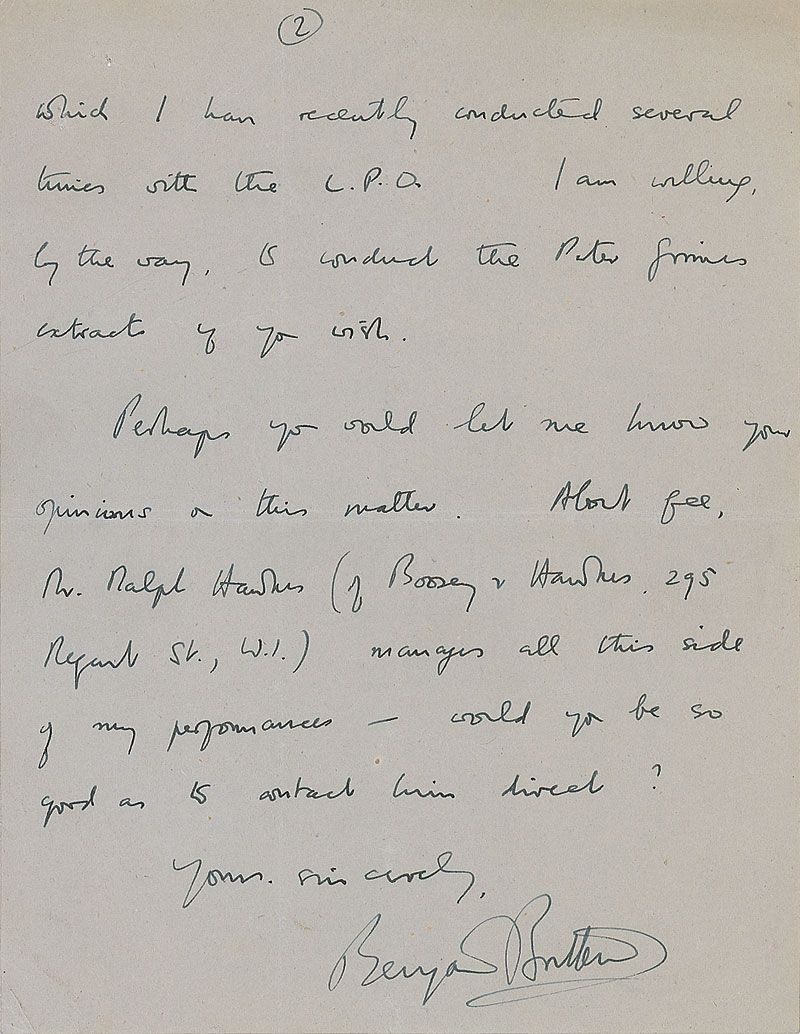 2
which I have recently conducted several
times with the L.P.O. I am willing,
by the way, to conduct the Peter Grimes
extracts if you wish.
Perhaps you would let me know your
opinions on this matter. About fee,
Mr. Ralph Hawkes (of Boosey & Hawkes, 295
Regent St., W.1.) manages all this side
of my performances — would you be so
good as to contact him direct?
Yours sincerely,
Benjamin Britten